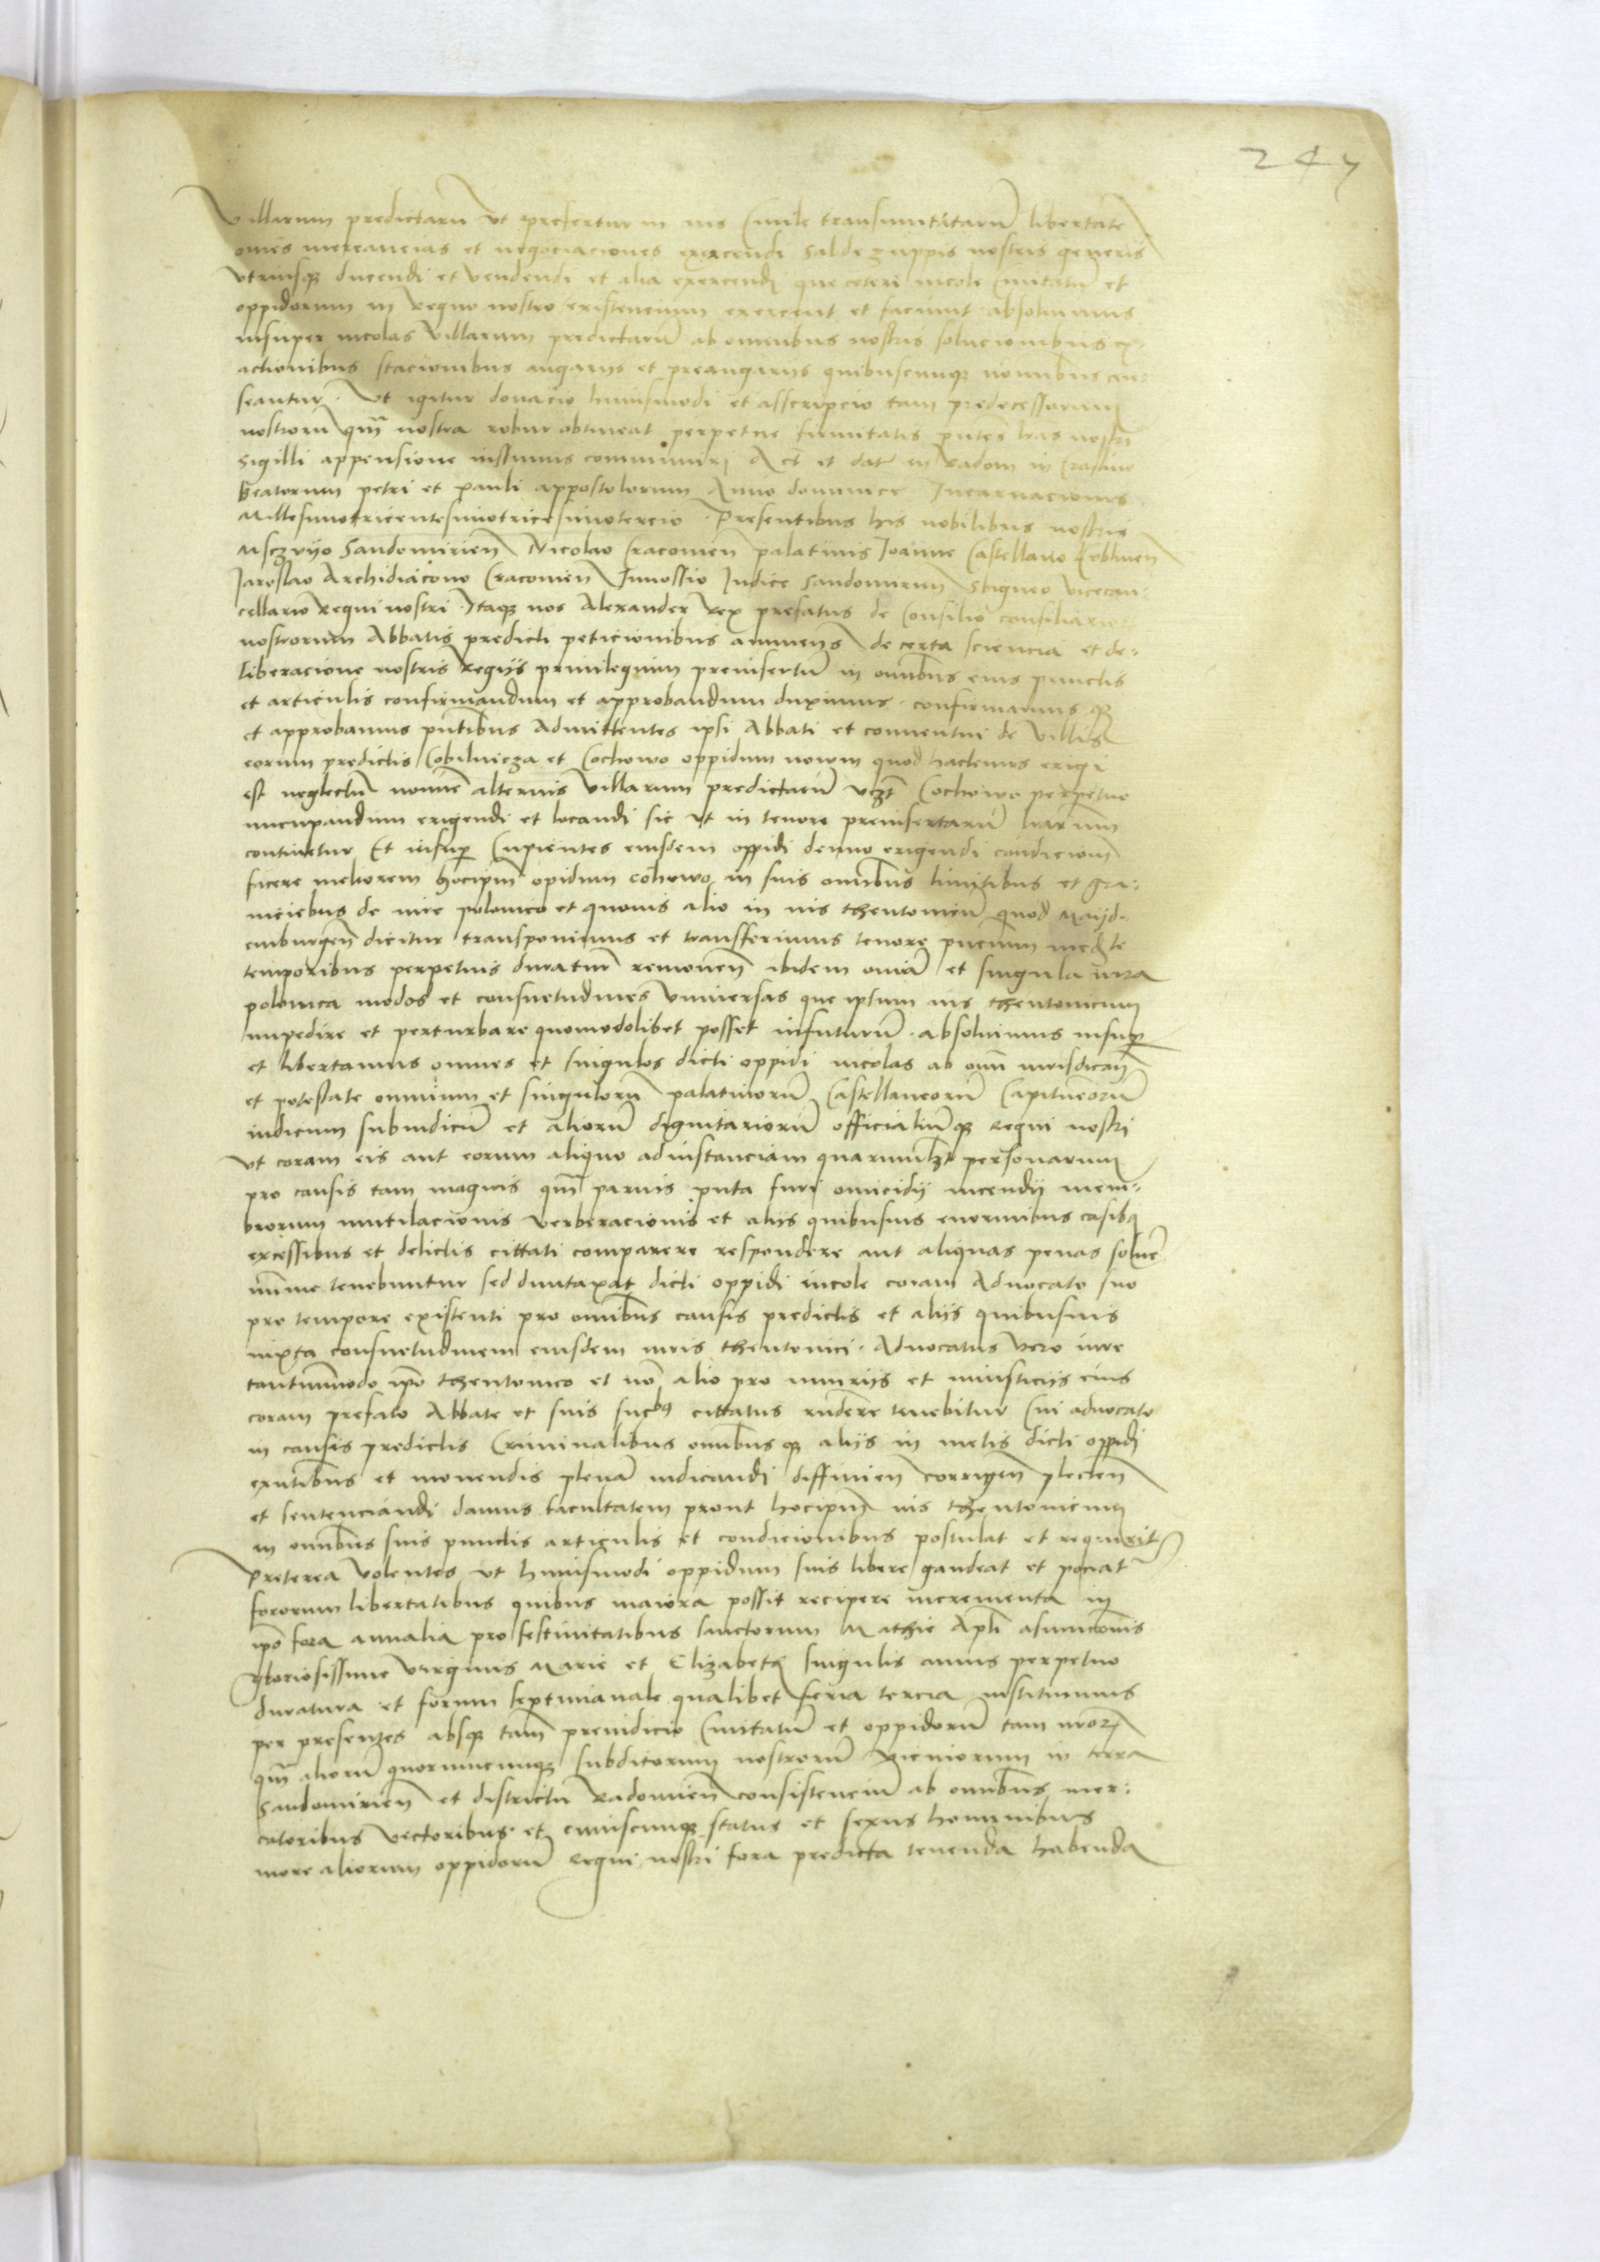 247
Villarum predictarũ vt prefertur in ius Civile transmutatarũ libertate
omēs mercancias et negociaciones exercendi Sal de zuppis nostris generis
vtriusq₃ ducendi et vendendi et alia exercendi que ceteri incole Civitatũ et
oppidorum in Regno nostro existencium exercent et faciunt absolvimus
insuper incolas Villarum predictarũ ab omnibus nostris solucionibus ex-
actionibus stacionibus angariis et preangariis quibuscunq₃ nominibus cen-
seantur. Vt igitur donacio huiusmodi et asscripcio tam predecessorum
nostrorũ qm̃ nostra robur obtineat perpetue firmitatis pñtes lr̃as nostri
Sigilli appensione iussimus communiri Act et dat̃ in Radom in Crastino
beatorum petri et pauli appostolorum Anno dominice Incarnacionis
Millesimotricentesimotricesimotercio. Presentibus his nobilibus nostris
Msczuyo Sandomirien̄ Nicolao Cracovien̄ palatinis Joanne Castellano
Jaroslao Archidiacono Cracovien̄ Judice Sandomirien̄ Sbigneo vicecan-
cellario Regni nostri. Itaq₃ nos Alexander Rex prefatus de Consilio consiliariorũ
nostrorum Abbatis predicti peticionibus annuens de certa sciencia et de-
liberacione nostris Regiis privilegium preinsertũ in om̄ibus eius punctis
et articulis confirmandum et approbandum duximus. confirmamus q₃
et approbamus pñtibus Admittentes ipsi Abbati et conventui de Villis
eorum predictis Cobilnicza et Cochowo oppidum novum quod hactenus erigi
est neglectũ nomine alterius Villarum predictarũ vz̃ Cochowo perpetuo
nuncupandum erigendi et locandi sic vt in tenore preinsertarũ lr̃arum
continetur Et insuꝑ Cupientes eiusdem oppidi denuo erigendi condicionem
facere meliorem hocipm̃ opidum Cohowo in suis om̄ibus limitibus et gra-
niciebus de iure polonico et quovis alio in ius theutonicũ quod Mayd-
emburgen̄ dicitur transponimus et transferimus tenore pñcium med̃te
temporibus perpetuis duratur̃ removen̄ ibidem om̄ia et singula iura
polonica modos et consuetudines vniversas que ipsum ius theutonicum
impedire et perturbare quomodolibet posset infuturũ. absolvimus insuꝑ
et libertamus omnes et singulos dicti oppidi incolas ab om̄i iurisdicc̃n̄e
et potestate omnium et singulorũ palatinorũ Castellaneorũ Capitaneorũ
iudicum subiudicũ et aliorũ dignitariorũ officialiumq₃ Regni nostri
vt coram eis aut eorum aliquo ad instanciam quarumlibet personarum
pro causis tam magnis qm̃ parvis puta furti omicidii incendii mem-
brorum mutilacionis verberacionis et aliis quibusvis enormibus casibꝯ
excessibus et delictis cittati comparere respondere aut aliquas penas solvẽ
minime tenebuntur sed duntaxat dicti oppidi incole coram Advocato suo
pro tempore existenti pro om̄ibus causis predictis et aliis quibusvis
iuxta consuetudinem eiusdem iuris theutonici. Advocatus vero iure
tantummodo ip̃o theutonico et no᷈ alio pro iniuriis et iniusticiis eius
coram prefato Abbate et suis sucbꝯ cittatus rñdere tenebitur Cui advocato
in causis predictis Criminalibus om̄ibusq₃ aliis in metis dicti oppidi
exñtibus et movendis plenã iudicandi diffinien̄ corrigen̄ plecten̄
et sentenciandi damus facultatem prout hocipm̃ ius theutonicum
in om̄ibus suis punctis articulis et condicionibus postulat et requirit
Preterea volentes vt huiusmodi oppidum suis libere gaudeat et pociat̃
fororum libertatibus quibus maiora possit recipere incrementa in
ip̃o fora annalia pro festivitatibus Sanctorum Mathie Apl̃i asumcionis
gloriosissime virginis Marie et Elizabeth singulis annis perpetuo
duratura et forum septimanale qualibet feria tercia instituimus
per presentes absq₃ tam̃ preiudicio Civitatũ et oppidorũ tam nr̃orz
qm̃ aliorũ quorumcunq₃ subditorum nostrorũ viciniorum in terra
Sandomirien̄ et districtu Radomien̄ consistenciũ ab om̄ibus mer-
catoribus vectoribus et cuiuscunq₃ status et sexus hominibus
more aliorum oppidorũ Regni nostri fora predicta tenenda habenda